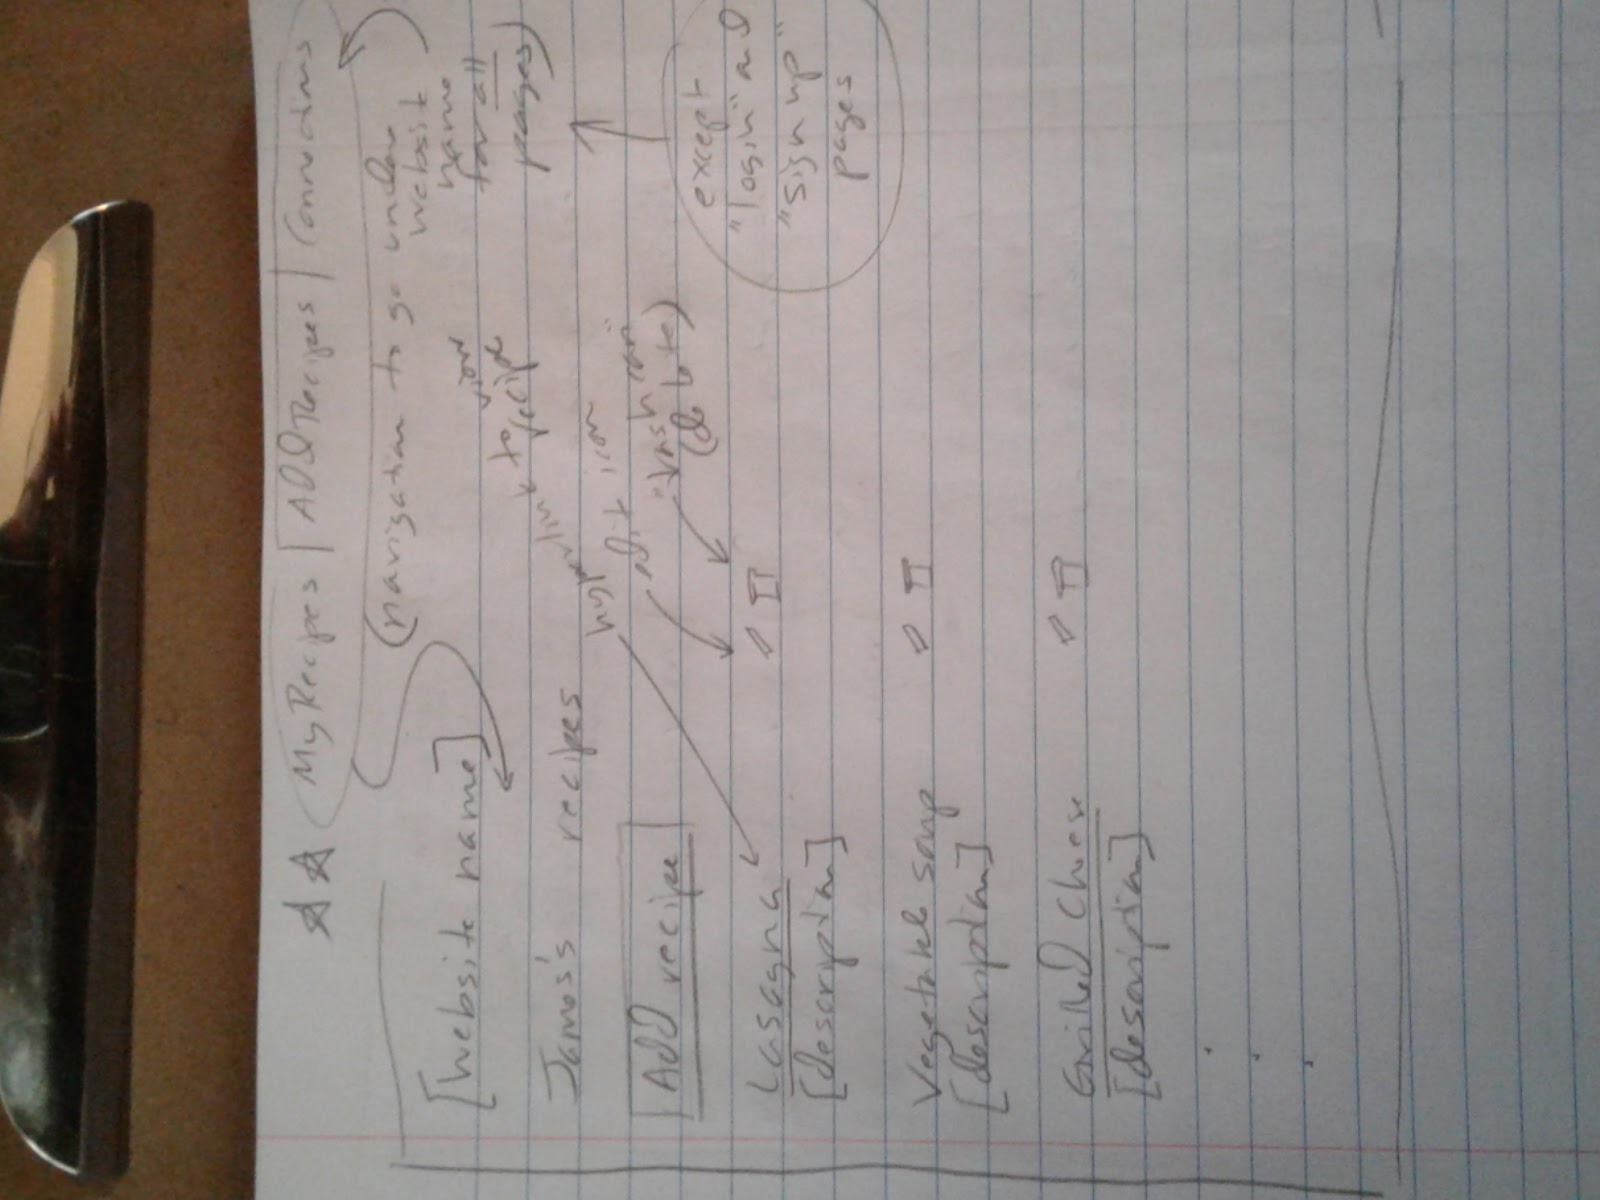 My Recipes | Add Recipes | Conversions
(navigation to go under
website
name
for all
pages)
except
"login" and
"sign up"
pages
[website name]
James's recipes
hyperlink to view
recipe
edit icon
"trash icon"
(delete)
[Add recipe]
Lasagna
[description]
Vegetable soup
[description]
Grilled Cheese
[description]